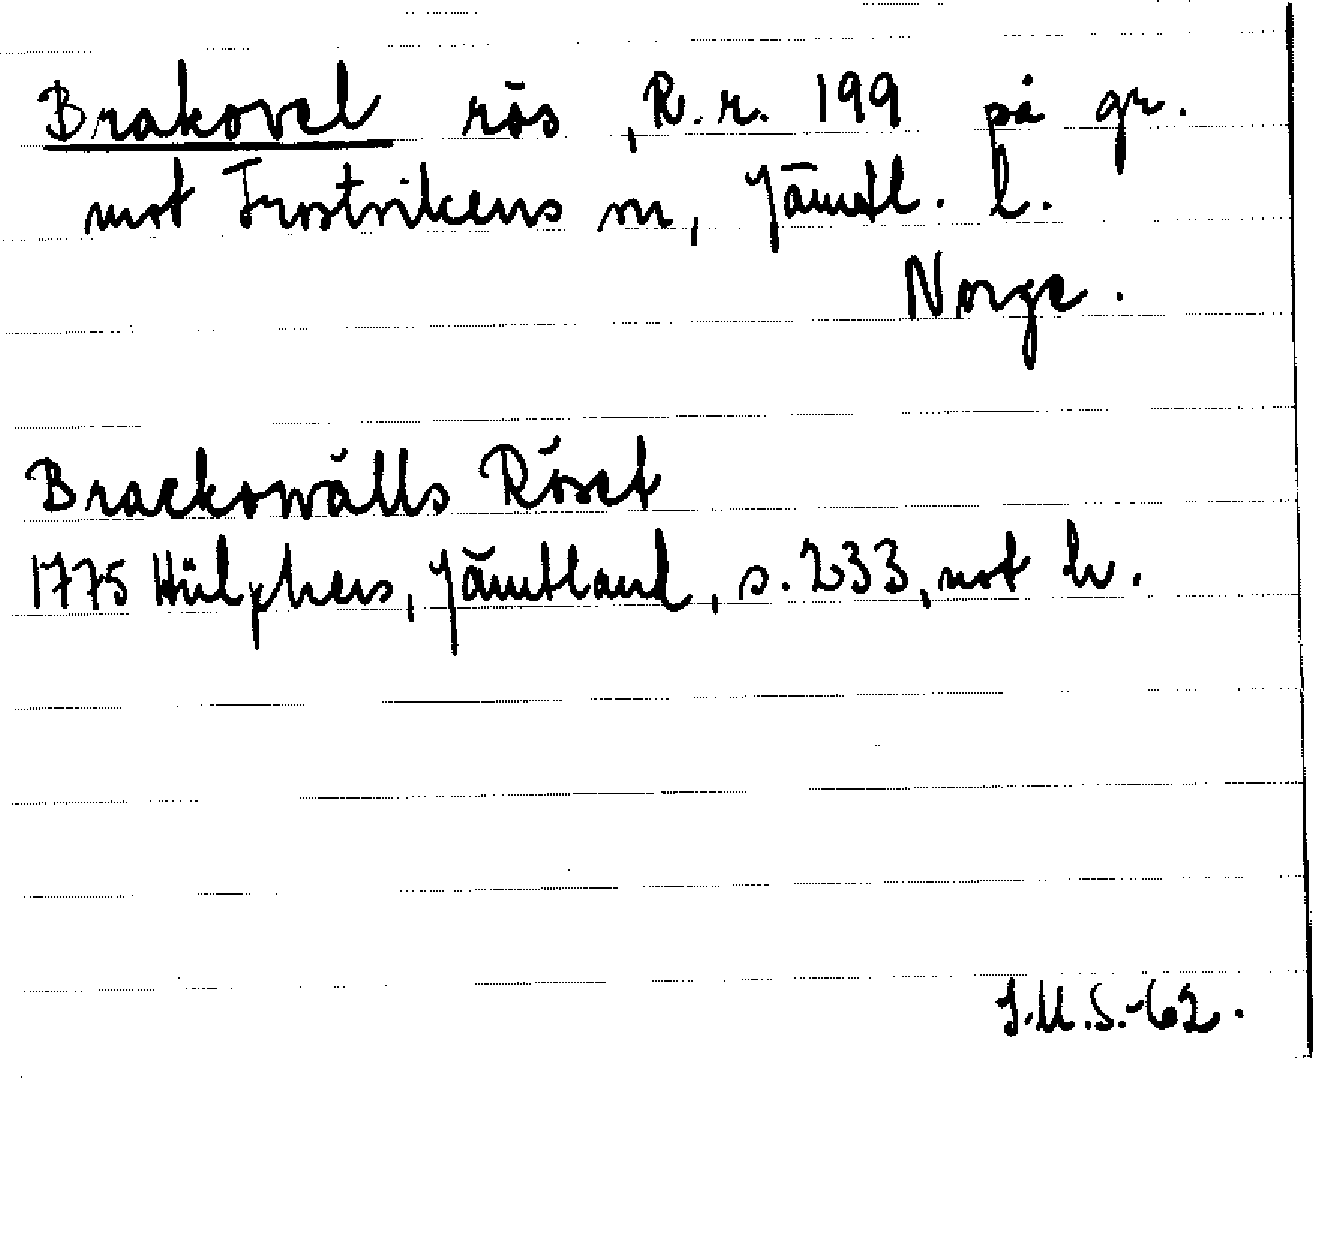 Brakovel rös, R. r. 199 på gr.
mot Frostvikens sn, Jämtl. l.
Norge.
Brackowälls Röset
1775 Hülphers, Jämtland, s. 233, not h.
I.M.S.-62.